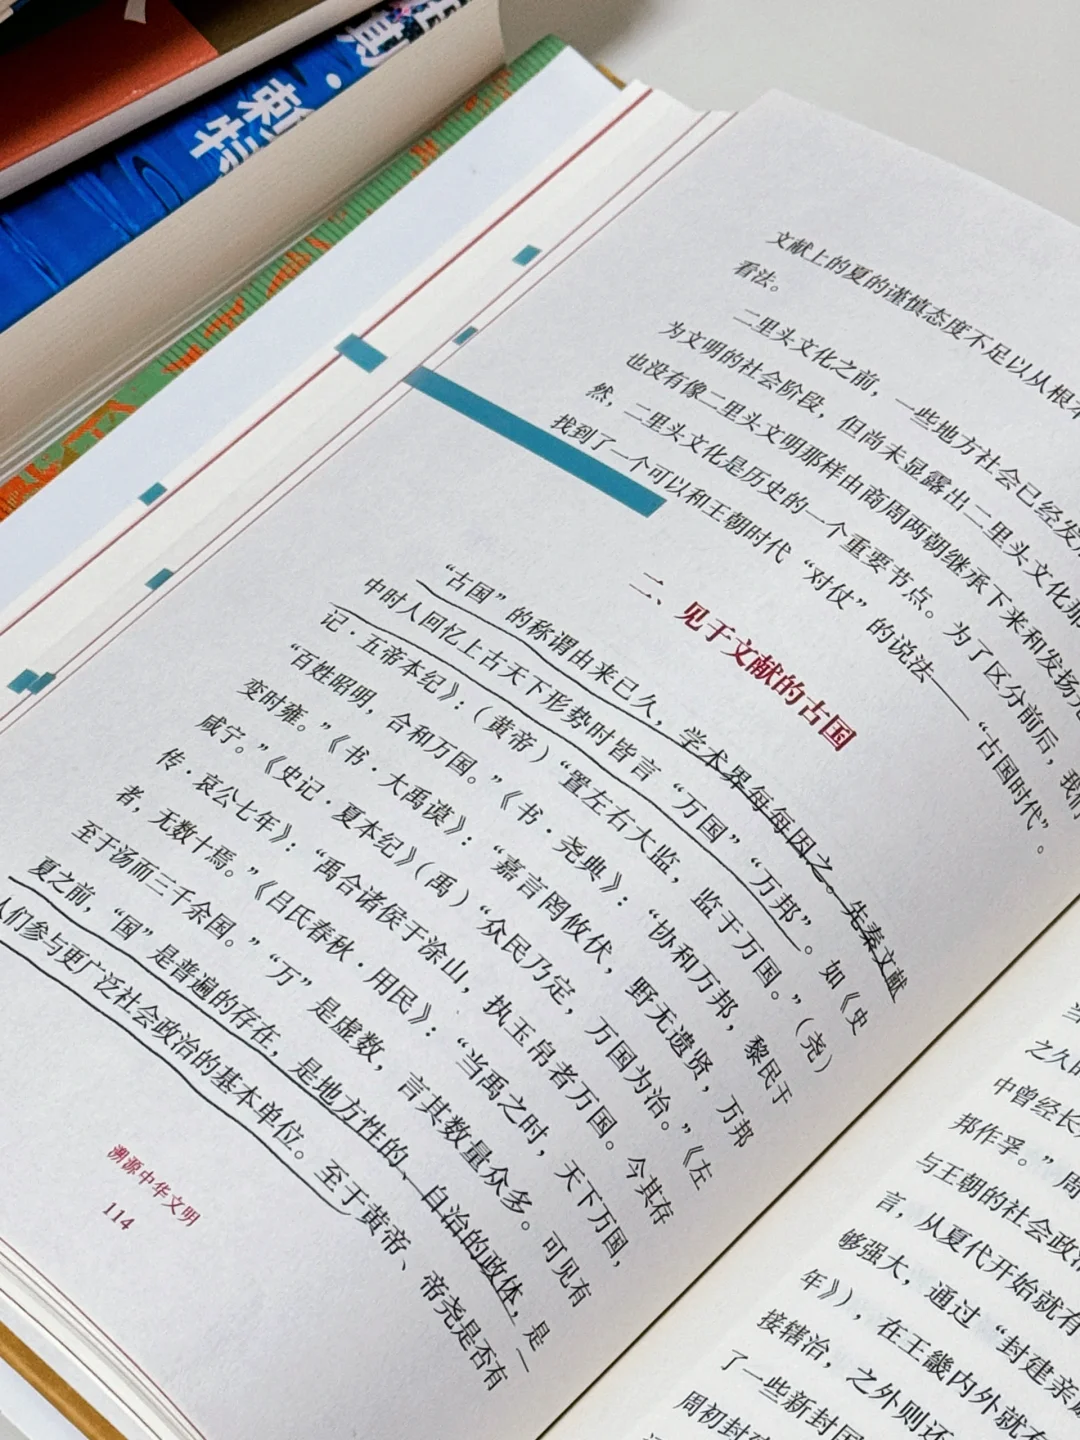 文献上的夏的谨慎态度不足以从根本
看法。
二里头文化之前，一些地方社会已经发
为文明的社会阶段，但尚未显露出二里头文化那
也没有像二里头文明那样由商周两朝继承下来和发扬
然，二里头文化是历史的一个重要节点。为了区分前后，我们
找到了一个可以和王朝时代“对仗”的说法——“古国时代”。
二、见于文献的古国
“古国”的称谓由来已久，学术界每每因之。先秦文献
中时人回忆上古天下形势时皆言“万国”“万邦”。如《史
记·五帝本纪》：（黄帝）“置左右大监，监于万国。”（尧）
“百姓昭明，合和万国。”《书·尧典》：“协和万邦，黎民于
变时雍。”《书·大禹谟》：“嘉言罔攸伏，野无遗贤，万邦
咸宁。”《史记·夏本纪》（禹）“众民乃定，万国为治。”《左
传·哀公七年》：“禹合诸侯于涂山，执玉帛者万国。今其存
者，无数十焉。”《吕氏春秋·用民》：“当禹之时，天下万国，
至于汤而三千余国。”“万”是虚数，言其数量众多。可见有
夏之前，“国”是普遍的存在，是地方性的、自治的政体，是
人们参与更广泛社会政治的基本单位。至于黄帝、帝尧是否有
溯源中华文明
114
当
之久的
中曾经长
邦作孚。”周
与王朝的社会政治
言，从夏代开始就有
够强大，通过“封建亲
年》），在王畿内外就有
接辖治，之外则还
了一些新封国
周初封